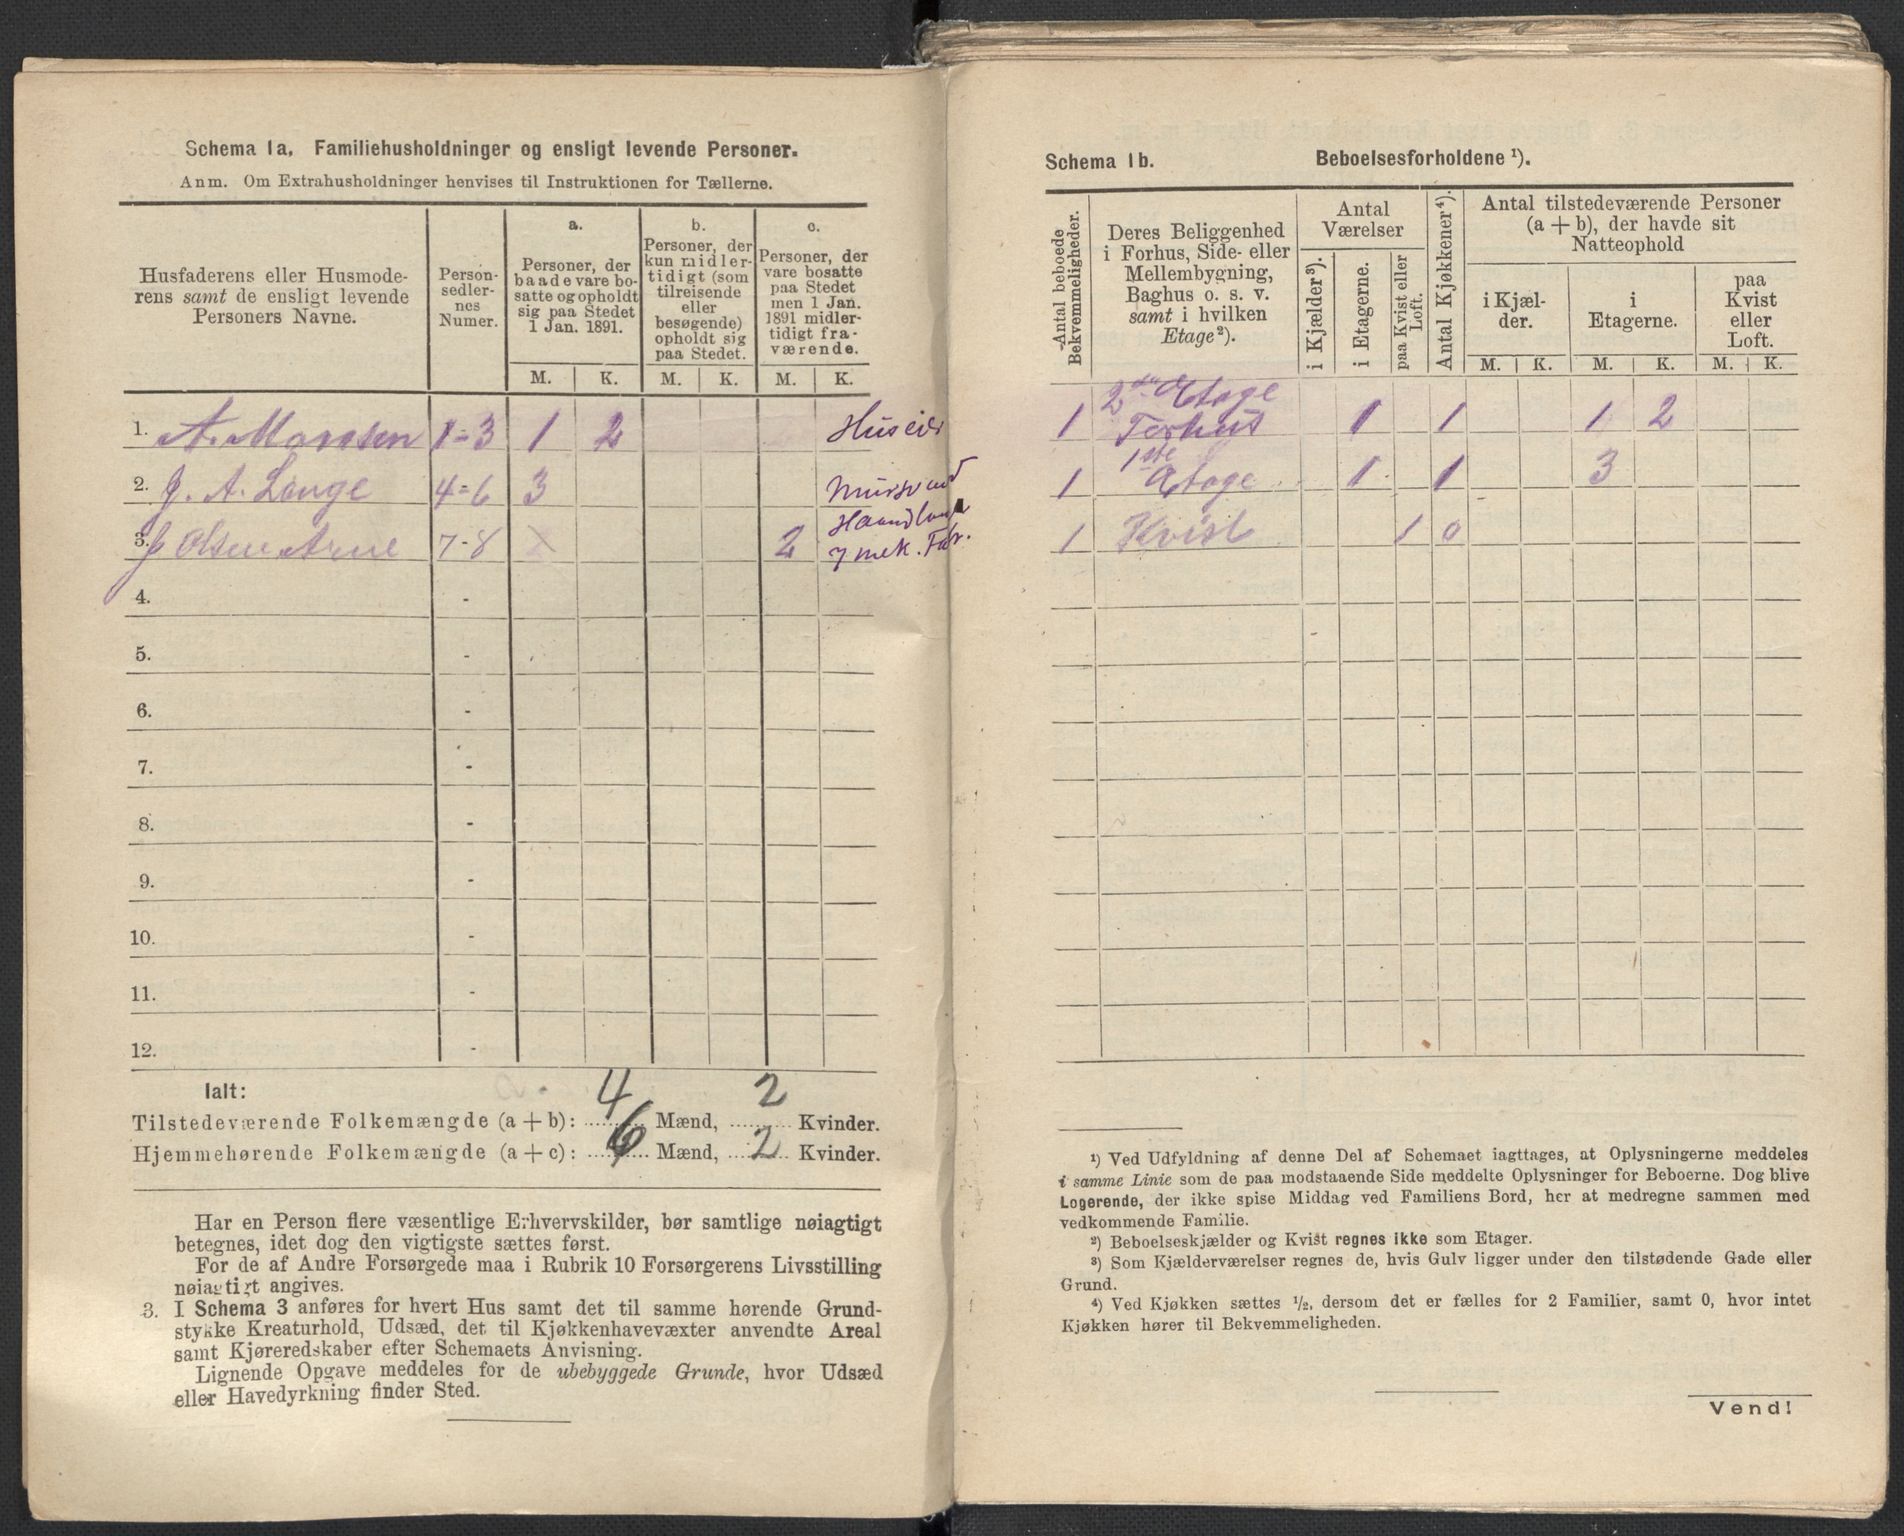 Schema 1a. Familiehusholdninger og ensligt levende Personer.
Anm. Om Extrahusholdninger henvises til Instruktionen for Tællerne.
Husfaderens eller Husmode-
rens samt de ensligt levende
Personers Navne.
Person-
sedler-
nes
Numer.
a.
Personer, der
baade vare bo-
satte og opholdt
sig paa Stedet
1 Jan. 1891.
M. K.
b.
Personer, der
kun midler-
tidigt (som
tilreisende
eller
besøgende)
opholdt sig
paa Stedet.
M. K.
c.
Personer, der
vare bosatte
paa Stedet
men 1 Jan.
1891 midler-
tidigt fra-
værende.
M. K.
1. A. 1-3 1 2 Huseier
2. J. A. Lange 4-6 3
3. J Olsen Arne 7-8 2 mek. Fabr.
4. -
5. -
6. -
7. -
8. -
9. -
10. -
11. -
12. -
Ialt:
Tilstedeværende Folkemængde (a + b): 4 Mænd, 2 Kvinder.
Hjemmehørende Folkemængde (a + c): 6 Mænd, 2 Kvinder.
Har en Person flere væsentlige Erhvervskilder, bør samtlige nøiagtigt
betegnes, idet dog den vigtigste sættes først.
For de af Andre Forsørgede maa i Rubrik 10 Forsørgerens Livsstilling
nøiagtigt angives.
3. I Schema 3 anføres for hvert Hus samt det til samme hørende Grund-
stykke Kreaturhold, Udsæd, det til Kjøkkenhavevæxter anvendte Areal
samt Kjøreredskaber efter Schemaets Anvisning.
Lignende Opgave meddeles for de ubebyggede Grunde, hvor Udsæd
eller Havedyrkning finder Sted.
Schema 1b. Beboelsesforholdene ¹).
Antal beboede
Bekvemmeligheder.
Deres Beliggenhed
i Forhus, Side- eller
Mellembygning,
Baghus o. s. v.
samt i hvilken
Etage²).
Antal
Værelser
i Kjælder³).
i Etagerne.
paa Kvist eller
Loft.
Antal Kjøkkener⁴).
Antal tilstedeværende Personer
(a + b), der havde sit
Natteophold
i Kjæl-
der.
M. K.
i
Etagerne.
M. K.
paa
Kvist
eller
Loft.
M. K.
2den Etage
1 Forhus 1 1 1 2
1ste
1 Etage 1 1 3
1 Kvist 1 0
¹) Ved Udfyldning af denne Del af Schemaet iagttages, at Oplysningerne meddeles
i samme Linie som de paa modstaaende Side meddelte Oplysninger for Beboerne. Dog blive
Logerende, der ikke spise Middag ved Familiens Bord, her at medregne sammen med
vedkommende Familie.
²) Beboelseskjælder og Kvist regnes ikke som Etager.
³) Som Kjælderværelser regnes de, hvis Gulv ligger under den tilstødende Gade eller
Grund.
⁴) Ved Kjøkken sættes ½, dersom det er fælles for 2 Familier, samt 0, hvor intet
Kjøkken hører til Bekvemmeligheden.
Vend!